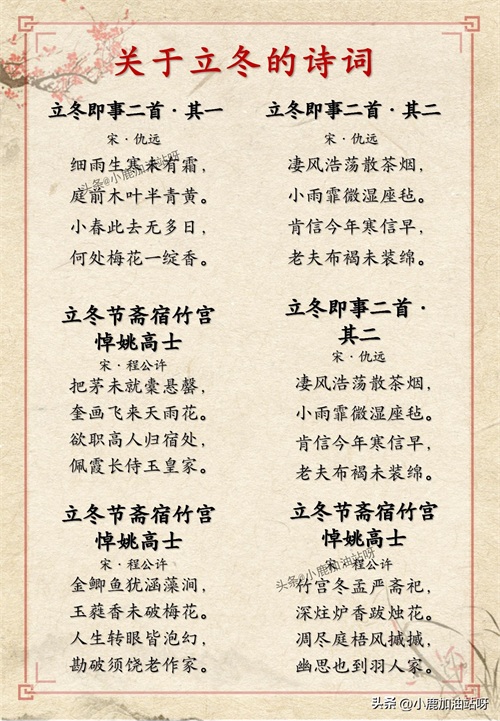 关于立冬的诗词
立冬即事二首·其一
宋·仇远
细雨生寒未有霜，
庭前木叶半青黄。
小春此去无多日，
何处梅花一绽香。
立冬即事二首·其二
宋·仇远
凄风浩荡散茶烟，
小雨霏微湿座毡。
肯信今年寒信早，
老夫布褐未装绵。
立冬节斋宿竹宫
悼姚高士
宋·程公许
把茅未就橐悬罄，
奎画飞来天雨花。
欲职高人归宿处，
佩霞长侍玉皇家。
立冬即事二首·
其二
宋·仇远
凄风浩荡散茶烟，
小雨霏微湿座毡。
肯信今年寒信早，
老夫布褐未装绵。
立冬节斋宿竹宫
悼姚高士
宋·程公许
金鲫鱼犹涵藻涧，
玉蕤香未破梅花。
人生转眼皆泡幻，
勘破须饶老作家。
立冬节斋宿竹宫
悼姚高士
宋·程公许
竹宫冬孟严斋祀，
深炷炉香跋烛花。
凋尽庭梧风摵摵，
幽思也到羽人家。
头条@小鹿加油站呀
头条@小鹿加油站呀
头条@小鹿加油站呀